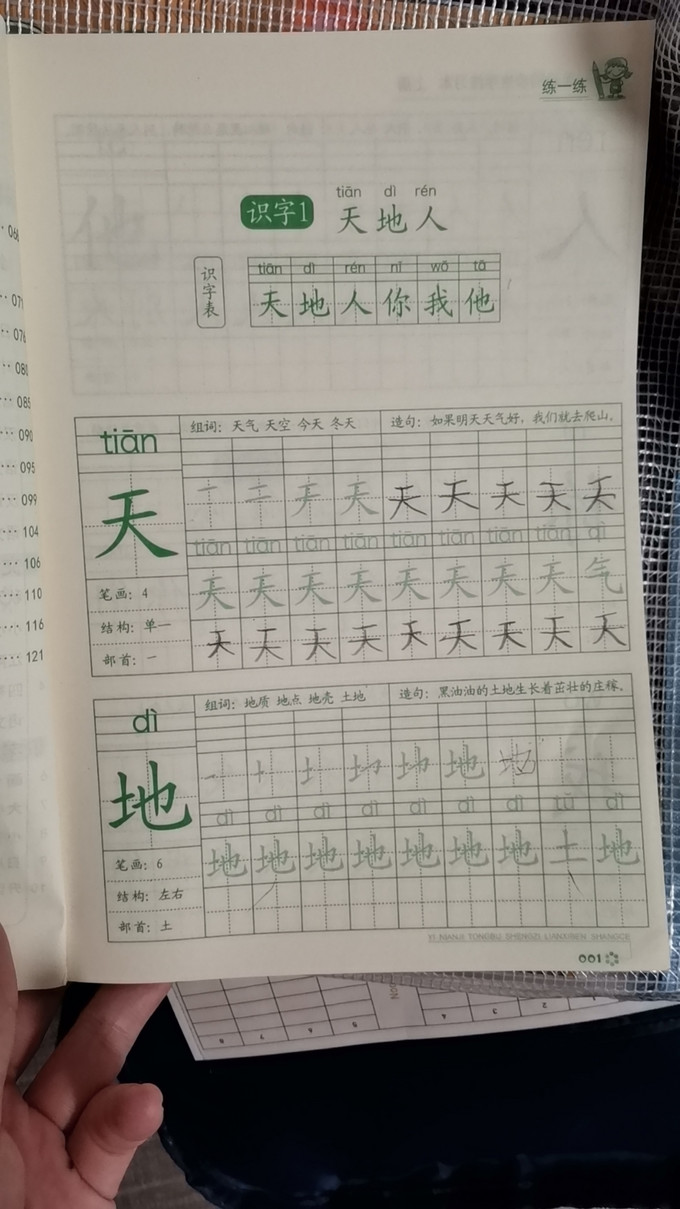 练一练
tiān dì rén
识字1 天地人
识字表
tiān dì rén nǐ wǒ tā
天 地 人 你 我 他
tiān
组词：天气 天空 今天 冬天
造句：如果明天天气好，我们就去爬山。
天
天 天 天 天 天
tiān tiān tiān tiān tiān tiān tiān tiān qì
天 天 天 天 天 天 天 天 气
天 天 天 天 天 天 天 天 天
笔画：4
结构：单一
部首：一
dì
组词：地质 地点 地壳 土地
造句：黑油油的土地生长着茁壮的庄稼。
地
dì dì dì dì dì dì dì tǔ dì
地 地 地 地 地 地 地 土 地
笔画：6
结构：左右
部首：土
YI MANJI TONGBU SHENGZI LIANXIBEN SHANGCE
001
068
076
080
085
090
095
099
104
106
110
116
121